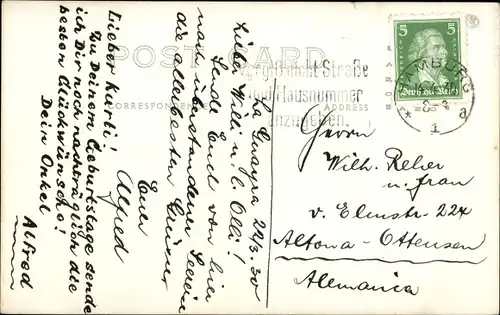 POST CARD
CORRESPONDENCE
ADDRESS
5 5
Deutsches Reich
HAMBURG
1
a
Vergiß nicht Straße
und Hausnummer
anzugeben.
La Guayra 22/3 30
Lieber Willi u. l. Olli!
Sende Euch von hier
nach überstandener Seereise
die allerbesten Grüsse
Euer
Alfred
Lieber Kurti!
Zu Deinem Geburtstage sende
ich Dir noch nachträglich die
besten Glückwünsche!
Dein Onkel
Alfred
Herrn
Wilh. Reher
u. Frau
v. Elmstr. 224
Altona-Ottensen
Alemania